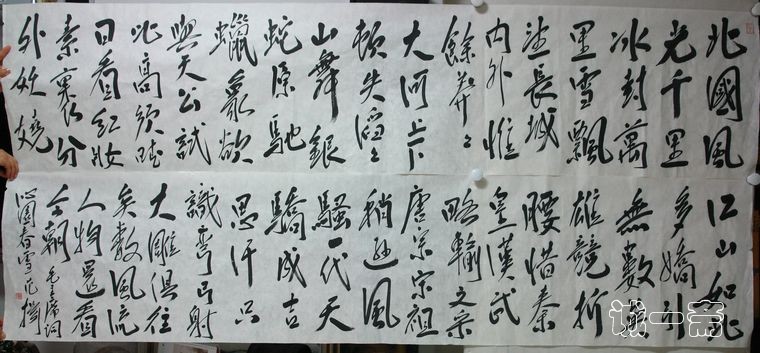 北國風
光千里
冰封萬
里雪飄
望長城
内外惟
餘莽々
大河上下
頓失滔々
山舞銀
蛇原馳
蠟象欲
與天公試
比高須晴
日看紅妝
素裹分
外妖嬈
江山如此
多嬌引
無數英
雄競折
腰惜秦
皇漢武
略輸文采
唐宗宋祖
稍遜風
騷一代天
驕成吉
思汗只
識彎弓射
大雕俱往
矣數風流
人物還看
今朝 毛主席詞
沁園春雪
诚一斋